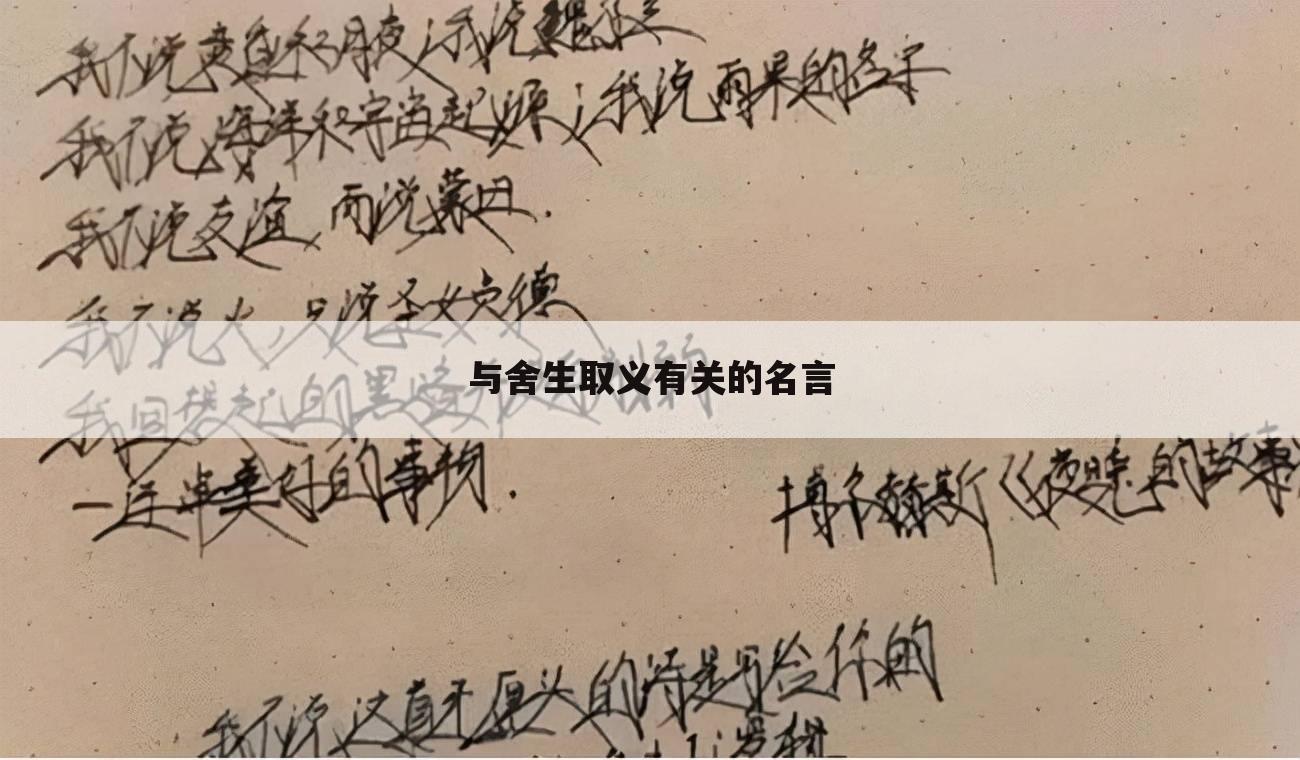 我不说和月夜；我说魏尔兰
我不说海洋和宇宙起源；我说雨果的名字
我不说友谊，而说蒙田.
我不说火，只说圣女贞德
与舍生取义有关的名言
我回想起的黑暗不会削弱
一连串美好的事物.
博尔赫斯《夜晚的故事》
我不说 这首无厘头的诗是写给你的